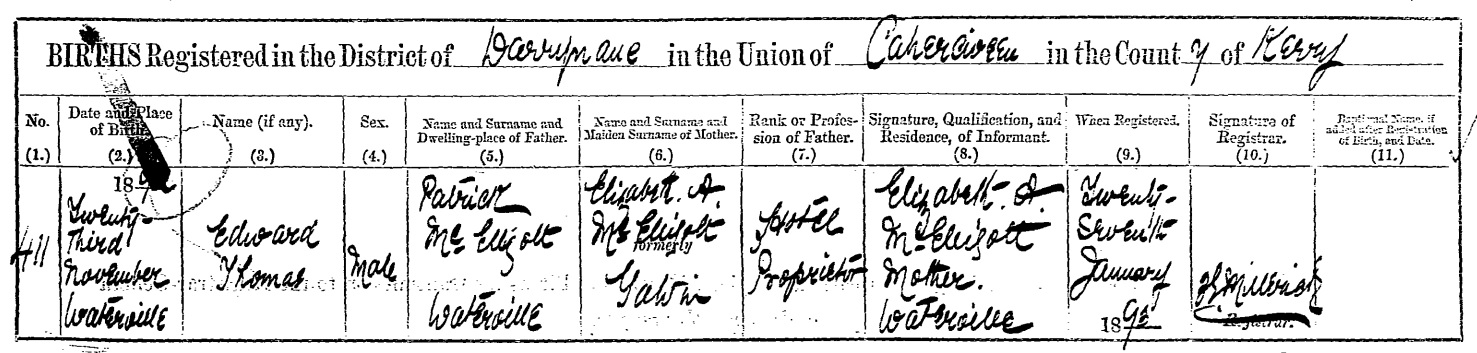 BIRTHS Registered in the District of Derrynane in the Union of Caherciveen in the County of Kerry
No. (1.)
Date and Place of Birth. (2.)
Name (if any). (3.)
Sex. (4.)
Name and Surname and Dwelling-place of Father. (5.)
Name and Surname and Maiden Surname of Mother. (6.)
Rank or Profession of Father. (7.)
Signature, Qualification, and Residence, of Informant. (8.)
When Registered. (9.)
Signature of Registrar. (10.)
Baptismal Name, if added after Registration of Birth, and Date. (11.)
411
18
Twenty-
Third
November
Waterville
Edward
Thomas
Male
Patrick
McElligott
Waterville
Elizabeth. A.
McElligott
formerly
Galvin
Hotel
Proprietor
Elizabeth. A.
McElligott
Mother.
Waterville
Twenty-
Seventh
January
1895
Registrar.